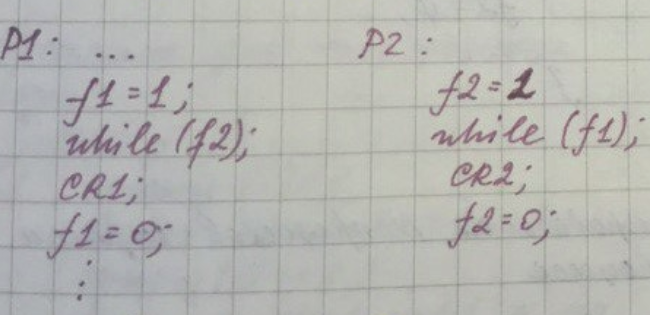 P1: ...
f1 = 1;
while (f2);
CR1;
f1 = 0;
⋮
P2:
f2 = 1
while (f1);
CR2;
f2 = 0;